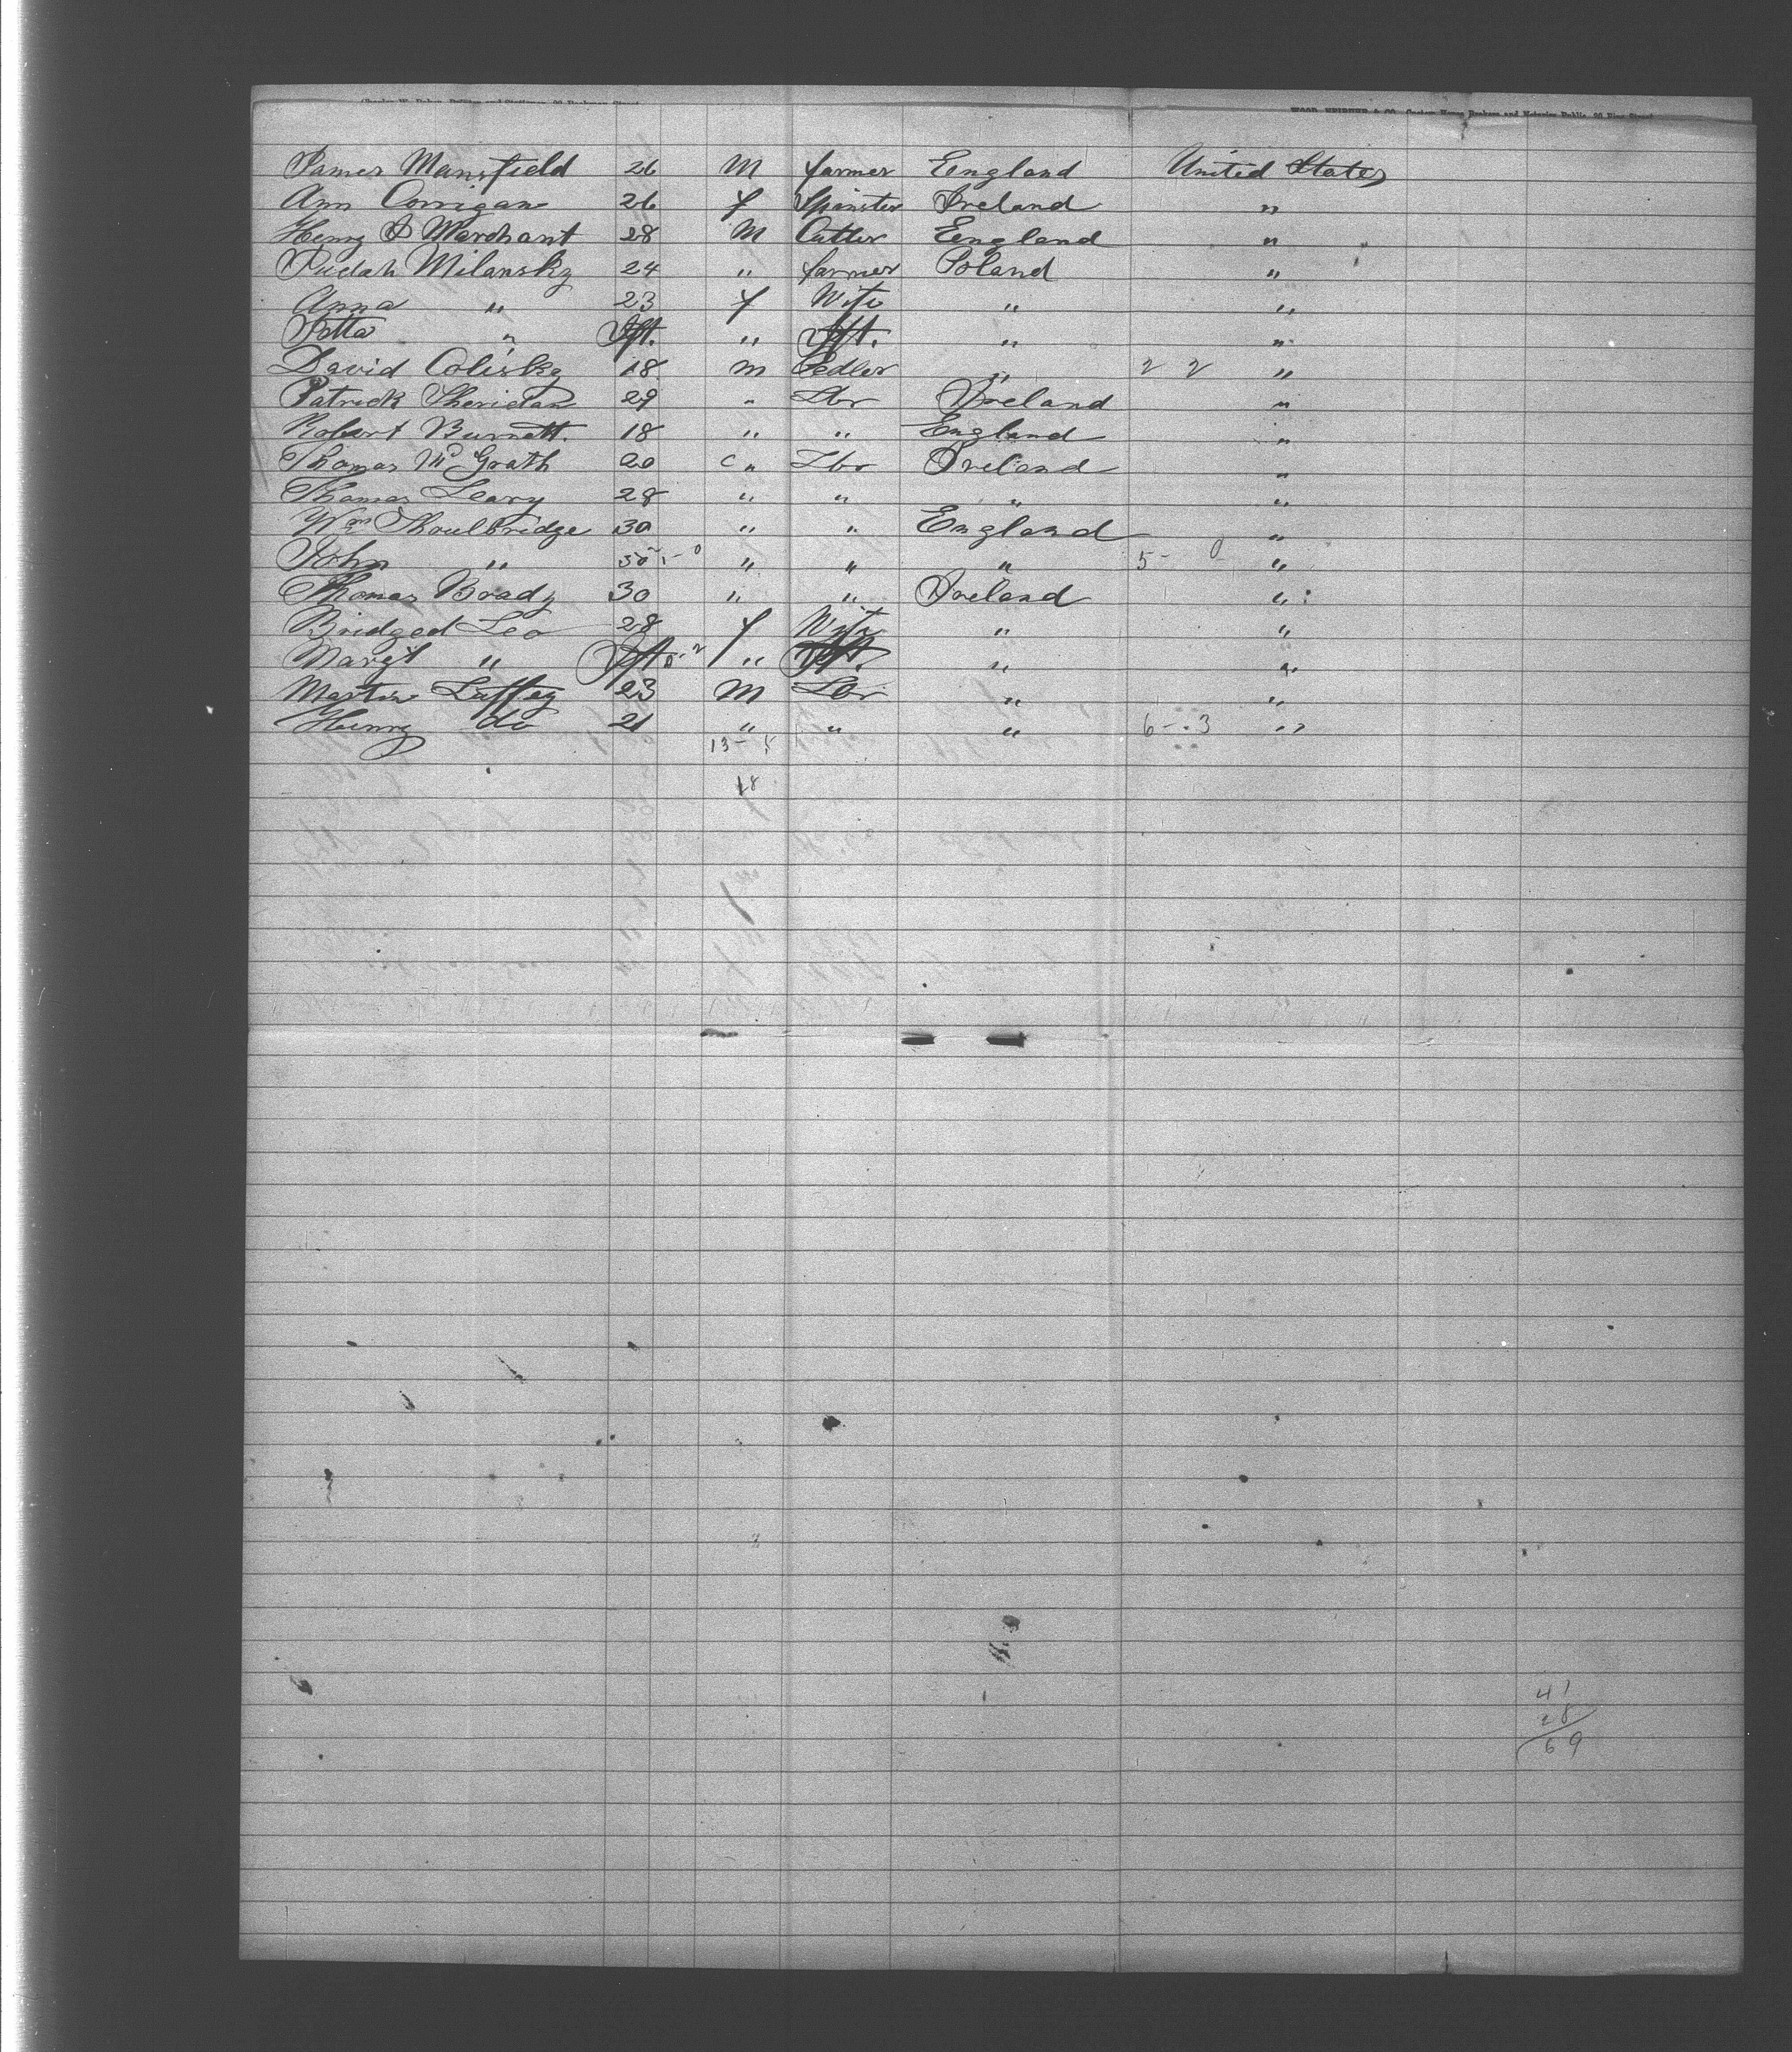 James Mansfield 26 M farmer England United States
Ann Corrigan 26 f Spinster Ireland "
Henry J Marchant 28 M Cutter England "
Judah Milansky 24 " farmer Poland "
Anna " 23 f Wife " "
Jetta " Ift. " Ift. " "
David Colisky 18 m Pedler " 2 2 "
Patrick Sheridan 29 " Lbr Ireland "
Robert Burnett. 18 " " England "
Thomas McGrath 20 " Lbr Ireland "
Thomas Leary 28 " " " "
Wm Thoulbridge 30 " " England "
John " " " " 5 - 0 "
Thomas Brady 30 " " Ireland "
Bridged Leo 28 f Wife " "
Margt " Ift " Ift. " "
Martin Laffey 23 M Lbr " "
Henry do 21 " " " 6 - 3 "
13 - 5
18
41
28
69